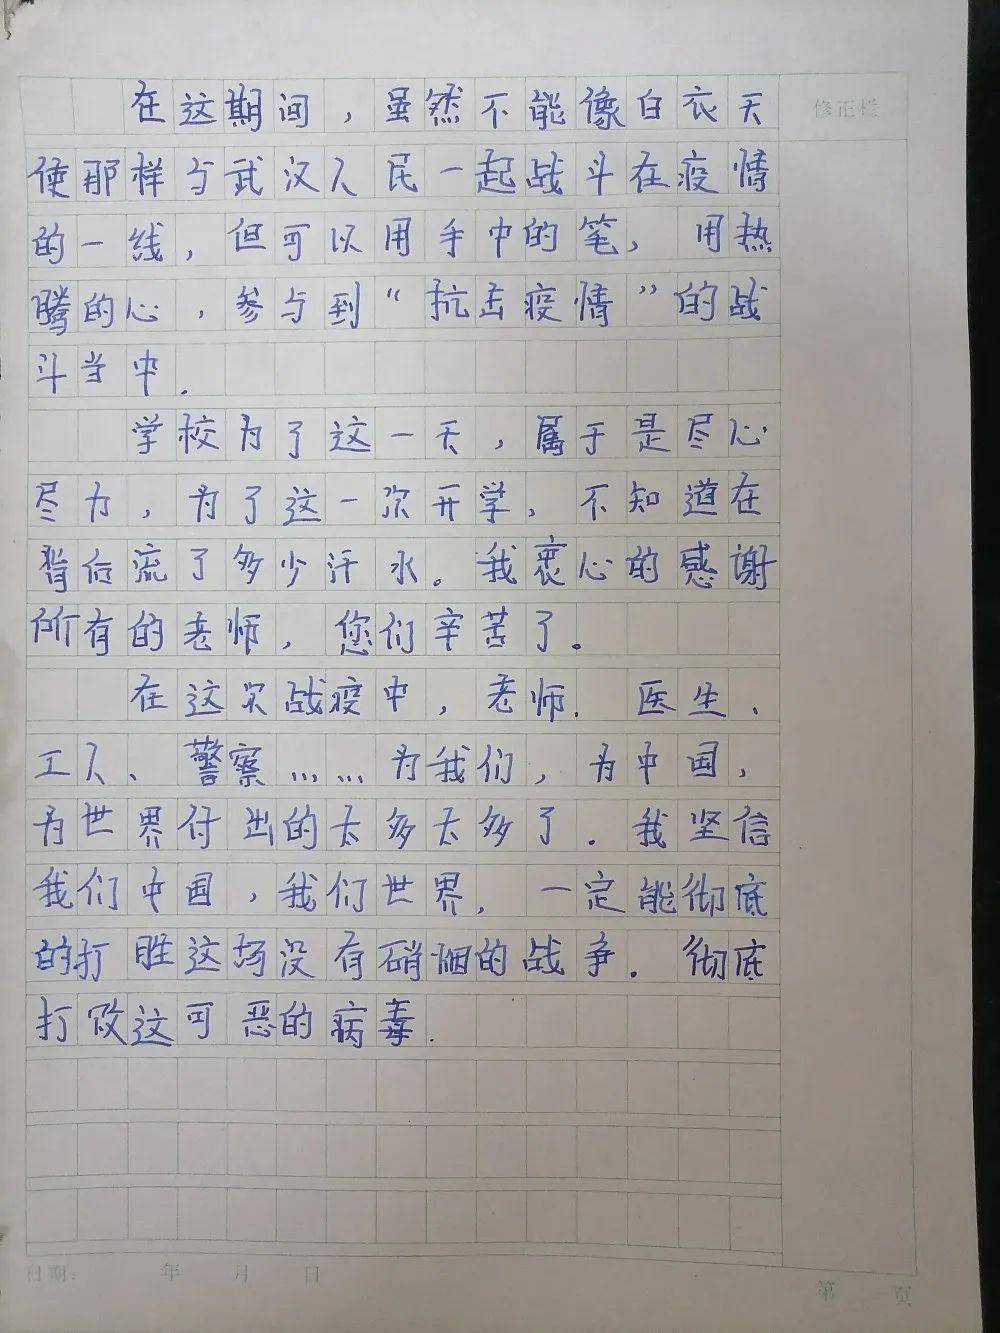 在这期间，虽然不能像白衣天
修正栏
使那样与武汉人民一起战斗在疫情
的一线，但可以用手中的笔，用热
腾的心，参与到“抗击疫情”的战
斗当中.
学校为了这一天，属于是尽心
尽力，为了这一次开学，不知道在
背后流了多少汗水。我衷心的感谢
所有的老师，您们辛苦了。
在这次战疫中，老师.医生、
工人、警察……为我们，为中国，
为世界付出的太多太多了.我坚信
我们中国，我们世界，一定能彻底
的打胜这场没有硝烟的战争.彻底
打败这可恶的病毒.
日期： 年 月 日
第 页